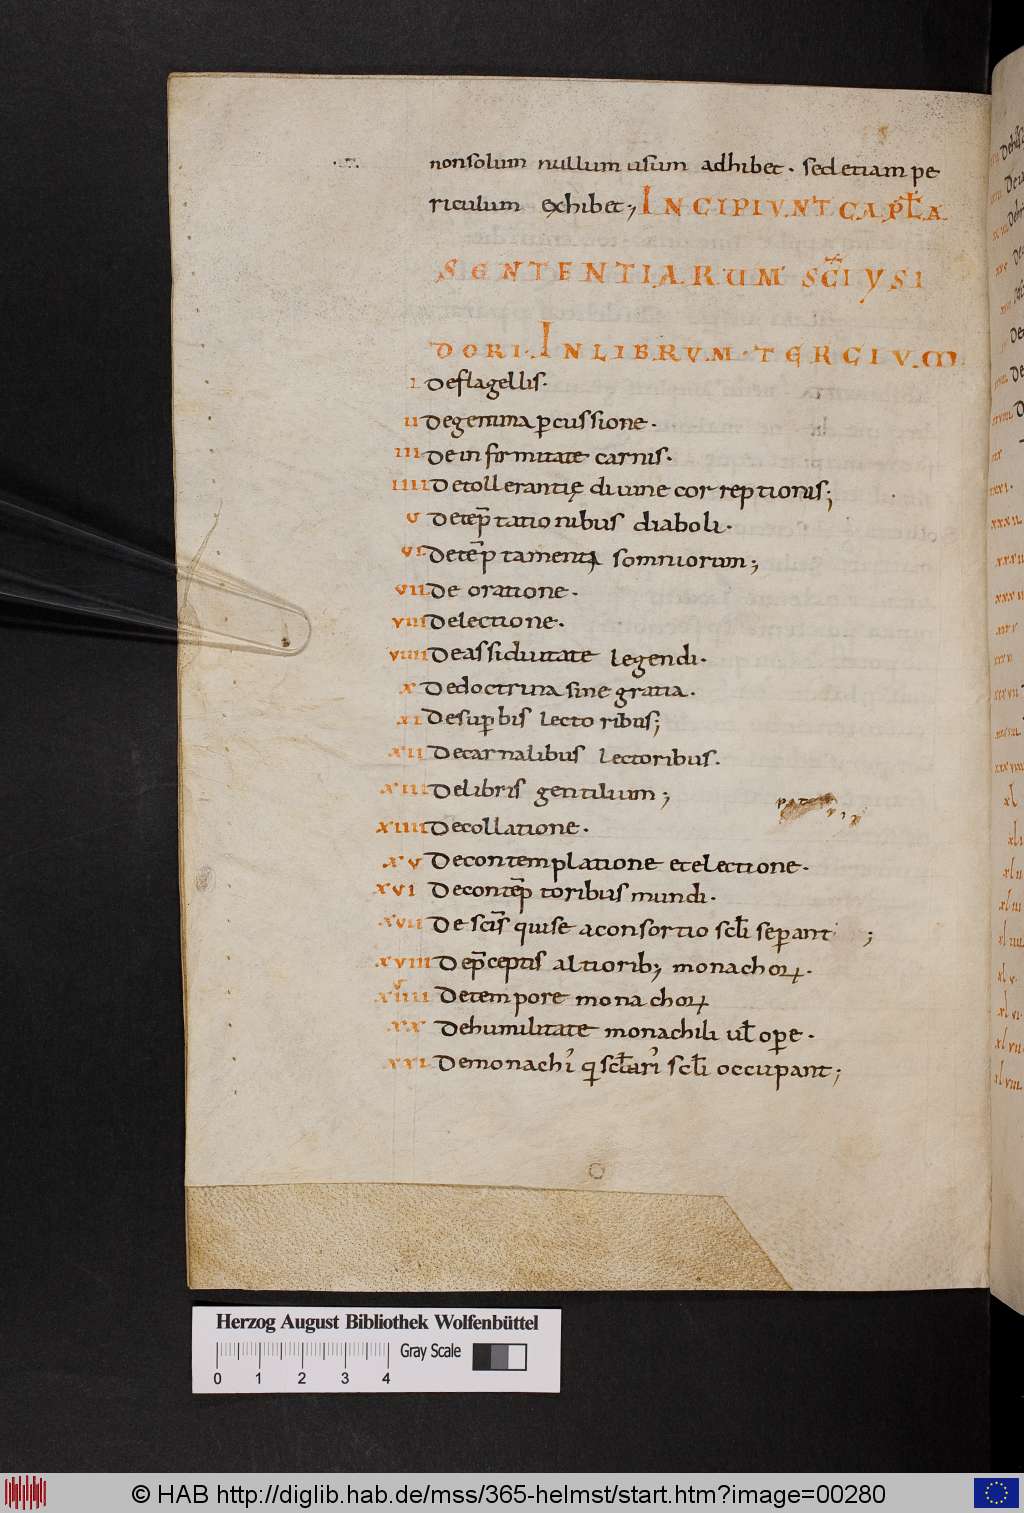 nonsolum nullum usum adhibet · sed etiam pe
riculum exhibet ; INCIPIUNT CAPƚA
SENTENTIARUM SC̄I YSI
DORI · IN LIBRVM · TERCIVM
I De flagellis ·
II De gemina ꝑcussione ·
III De infirmitate carnis ·
IIII De tollerantię divine correptionis ;
V De tēptationibus diaboli ·
VI De tēptamentꝝ somniorum ;
VII De oratione ·
VIII De lectione ·
VIIII De assiduitate legendi ·
X De doctrina sine gratia ·
XI De suꝑbis lectoribus ;
XII De carnalibus lectoribus ·
XIII De libris gentilium ;
XIIII De collatione ·
XV De contemplatione et electione ·
XVI De contēptoribus mundi ·
XVII De scīs qui se a consortio scƚi seꝑant ;
XVIII De p̄ceptis altiorib; monachoꝝ ·
XVIIII De tempore monachoꝝ
XX De humilitate monachili uƚ oꝑe ·
XXI De monachi᾽ q scƚari᾽ scƚi occupant ;
Herzog August Bibliothek Wolfenbüttel
Gray Scale
0 1 2 3 4
© HAB http://diglib.hab.de/mss/365-helmst/start.htm?image=00280